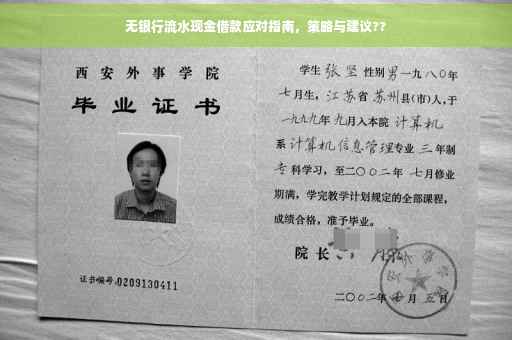 无银行流水现金借款应对指南，策略与建议??
西安外事学院
毕业证书
证书编号:0209130411
学生 张坚 性别男一九八0年
七月生，江苏省苏州县(市)人,于
一九九九年九月入本院 计算机
系计算机信息管理专业 三 年制
专科学习，至二〇〇二年 七月修业
期满，学完教学计划规定的全部课程，
成绩合格，准予毕业。
院长
二〇〇二年 月 五日